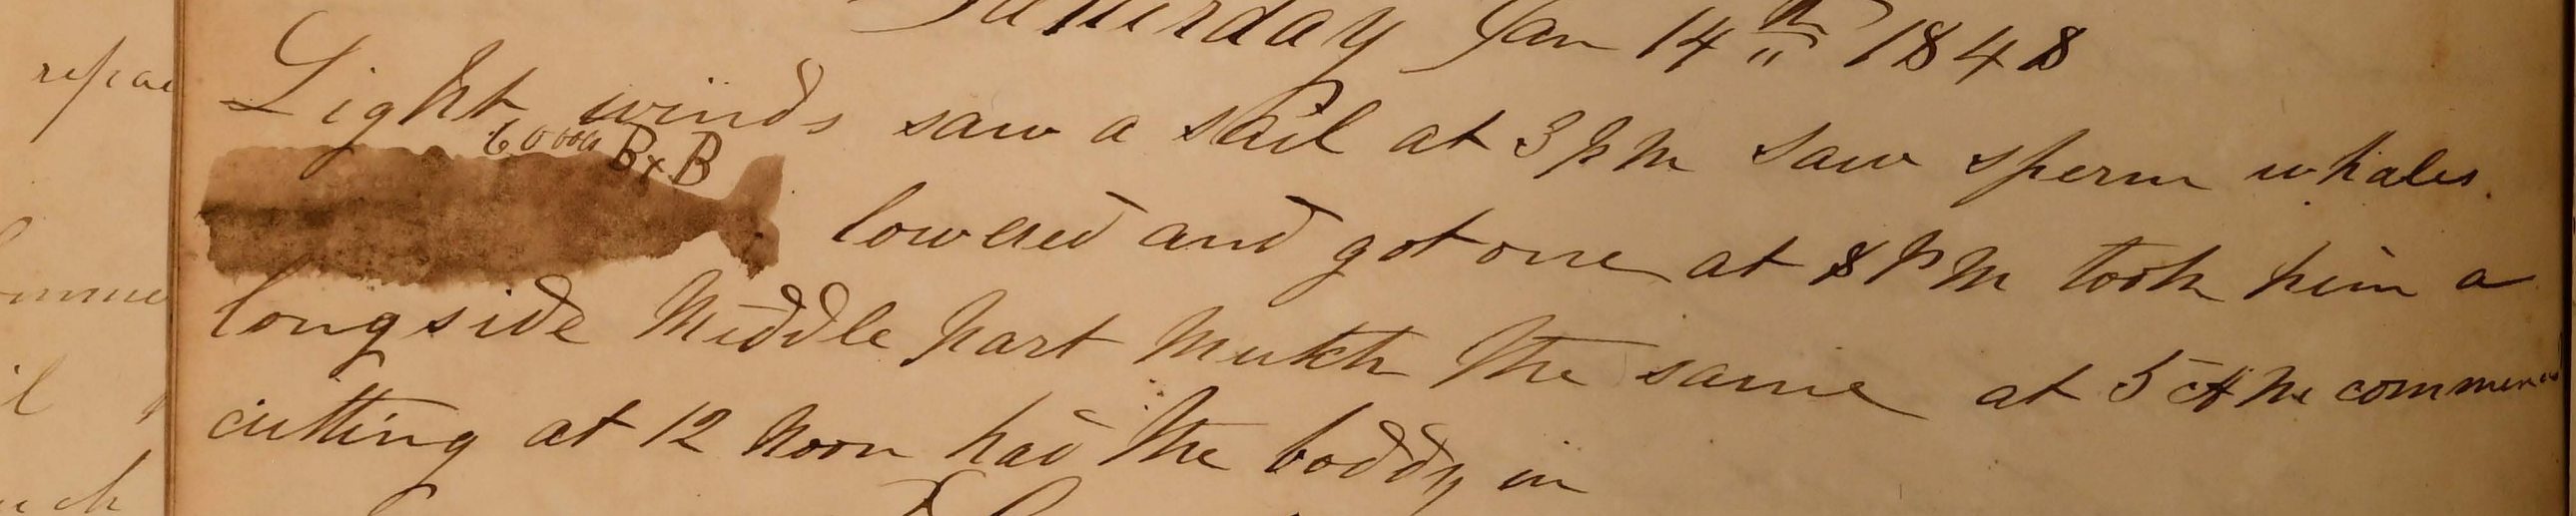 Satterday Jan 14th 1848
Light winds saw a sail at 3 PM Saw sperm whales
B x B
lowered and got one at 8 PM took him a
longside Middle part Mutch the same at 5 AM commenced
cutting at 12 Noon had the boddy in